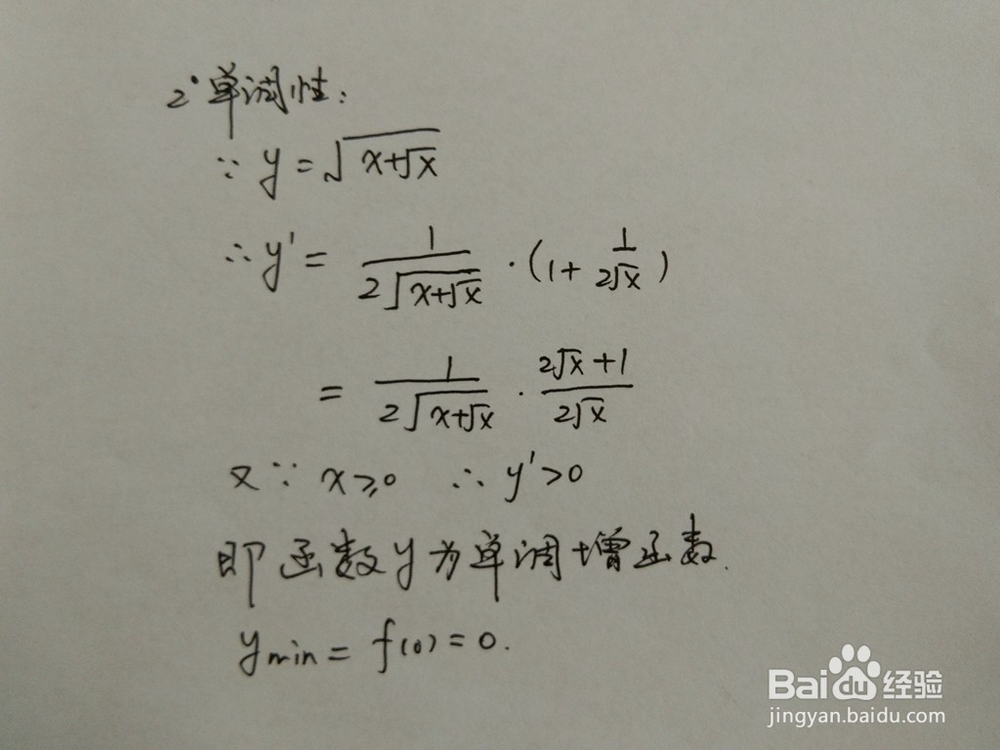 2°单调性:
∵ y=√(x+√x)
∴ y'= 1/(2√(x+√x)) · (1+ 1/(2√x))
= 1/(2√(x+√x)) · (2√x+1)/(2√x)
又∵ x≥0 ∴ y'>0
即函数y为单调增函数.
ymin= f(0)=0.
Baidu经验
jingyan.baidu.com